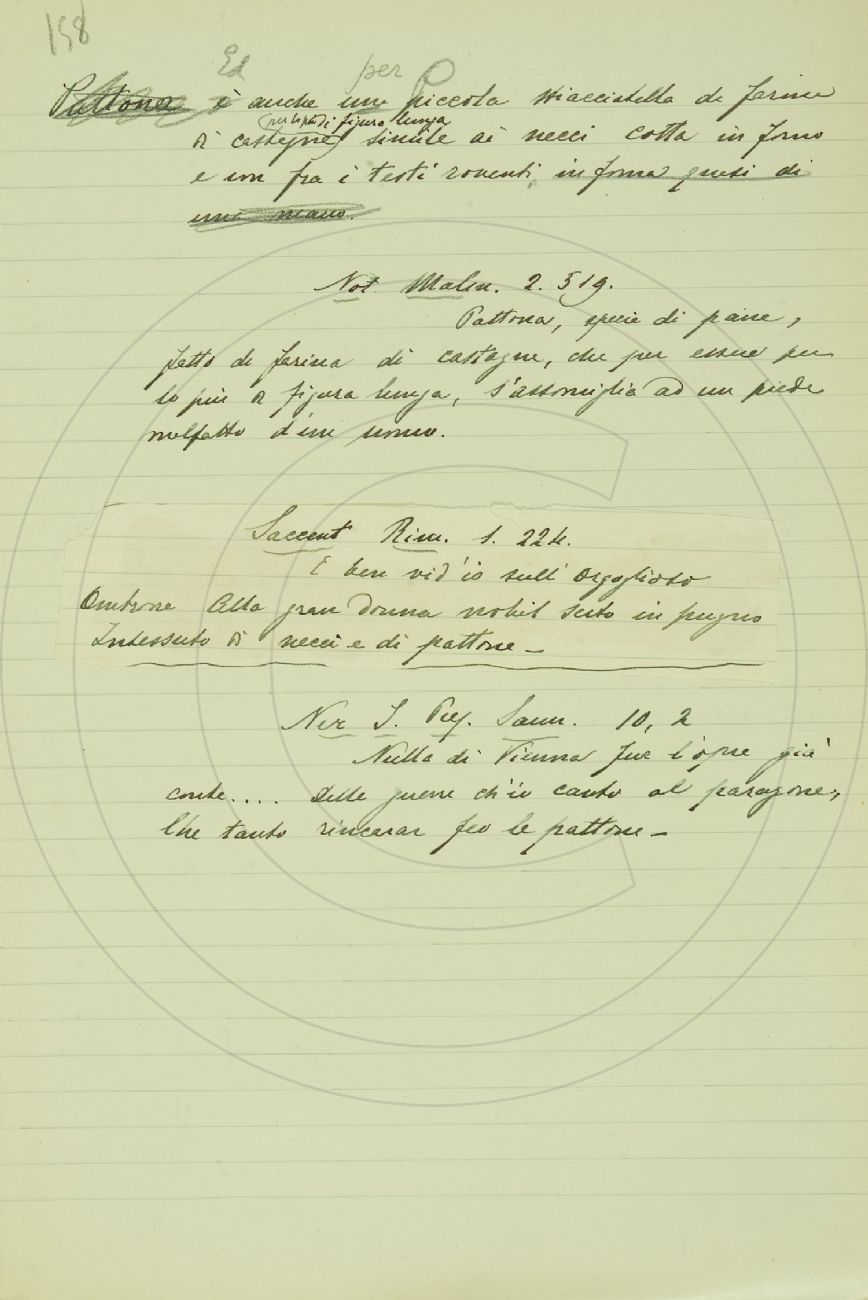 158
Ed per
Pattona è anche una piccola stiacciatella di farina
per lo più di figura lunga
di castagne simile ai necci cotta in forno
e non fra i testi roventi in forma quasi di
una mano.
Not Malm. 2. 519.
Pattona, specie di pane,
fatto di farina di castagne, che per essere per
lo più di figura lunga, s'assomiglia ad un piede
malfatto d'un uomo.
Saccent Rim. 1. 224.
E ben vid'io sull' orgoglioso
Ombrone Alla gran donna nobil serto in pugno
Intessuto di necci e di pattone –
Ner I. Pres. Sam. 10, 2
Nulla di Vienna fur l'opre già
conte.... delle guerre ch'io canto al paragone,
Che tanto rincarar feo le pattone –